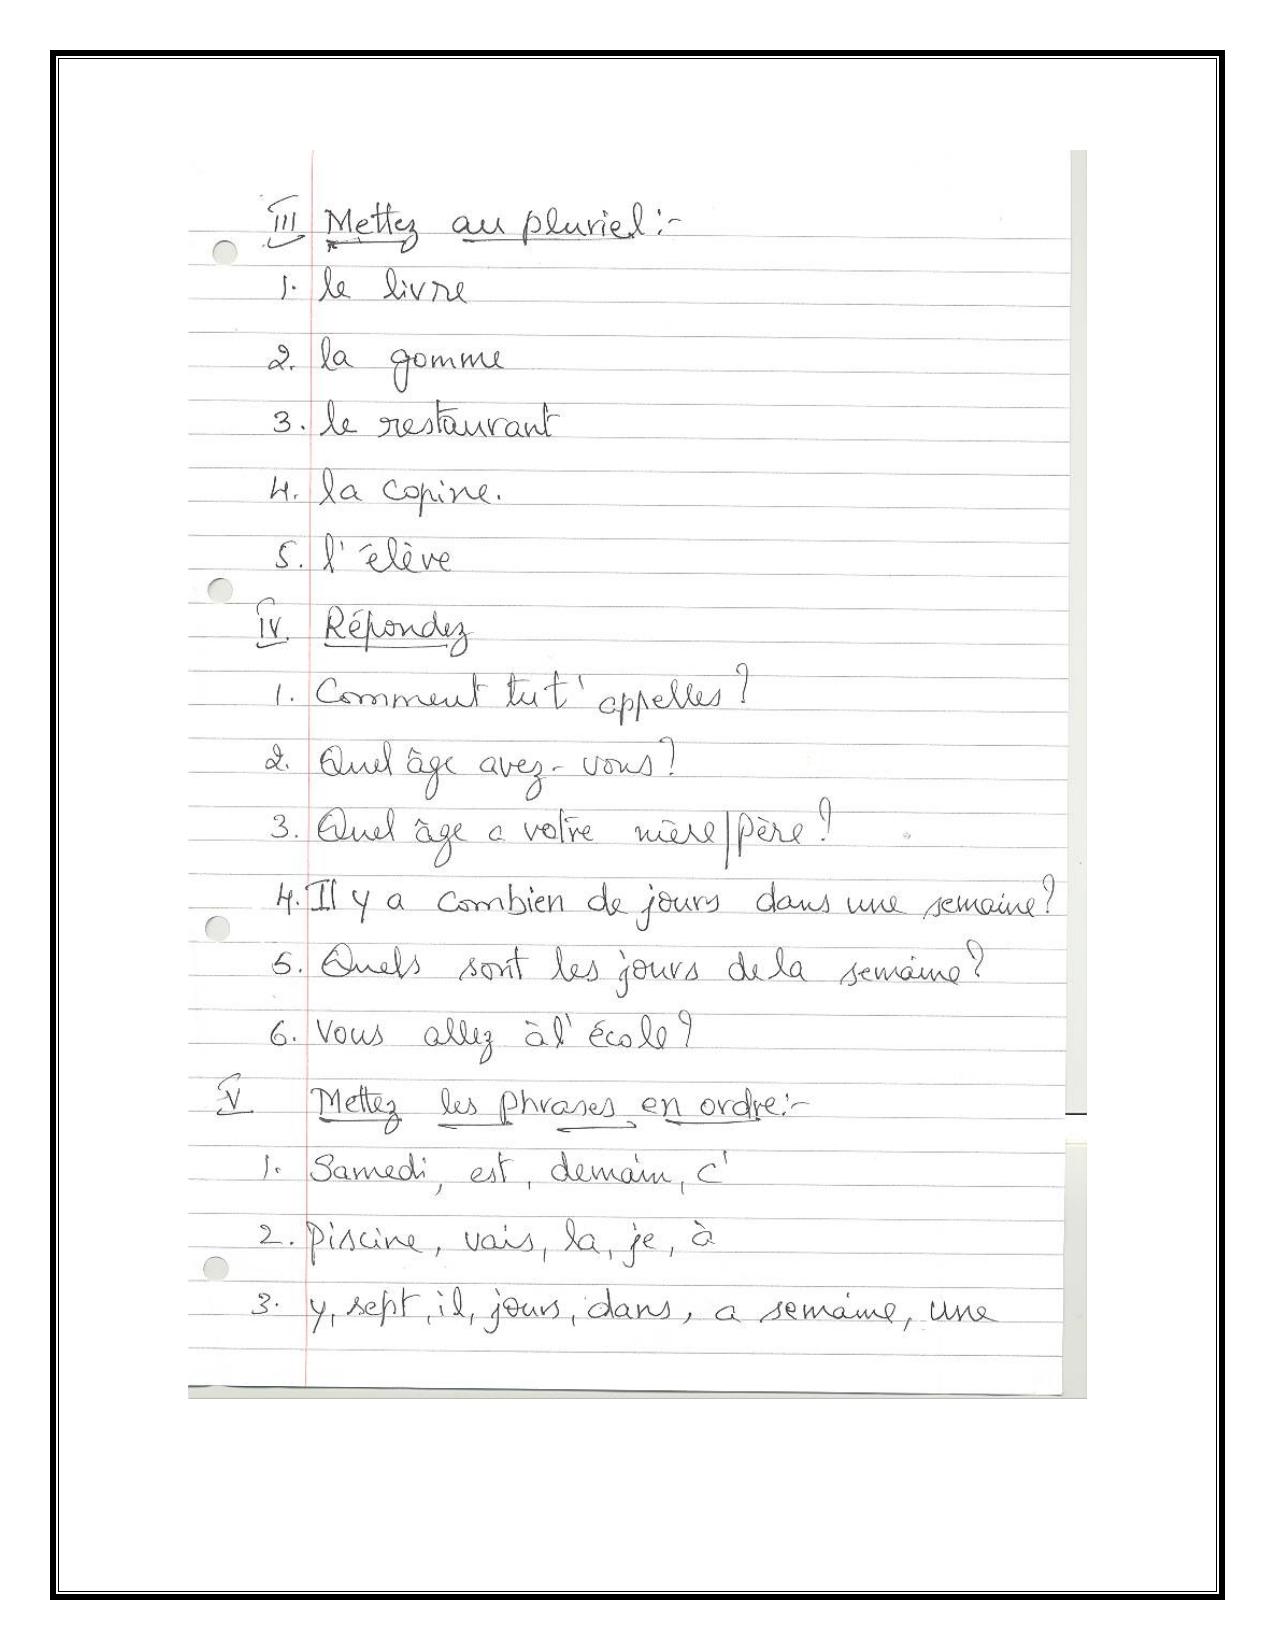 III Mettez au pluriel :-
1. le livre
2. la gomme
3. le restaurant
4. la copine.
5. l'élève
IV. Répondez
1. Comment tu t'appelles?
2. Quel âge avez-vous?
3. Quel âge a votre mère/père?
4. Il y a combien de jours dans une semaine?
5. Quels sont les jours de la semaine?
6. Vous allez à l'école?
V Mettez les phrases en ordre:-
1. Samedi, est, demain, c'
2. piscine, vais, la, je, à
3. y, sept, il, jours, dans, a semaine, une